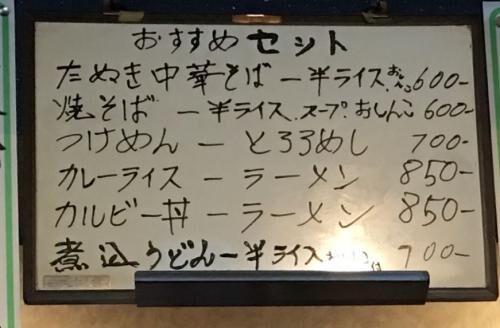 おすすめセット
たぬき中華そば ー 半ライス、おしんこ 600-
焼そば ー 半ライス、スープ、おしんこ 600-
つけめん ー とろろめし 700-
カレーライス ー ラーメン 850-
カルビー丼 ー ラーメン 850-
煮込うどん ー 半ライス 付 700-